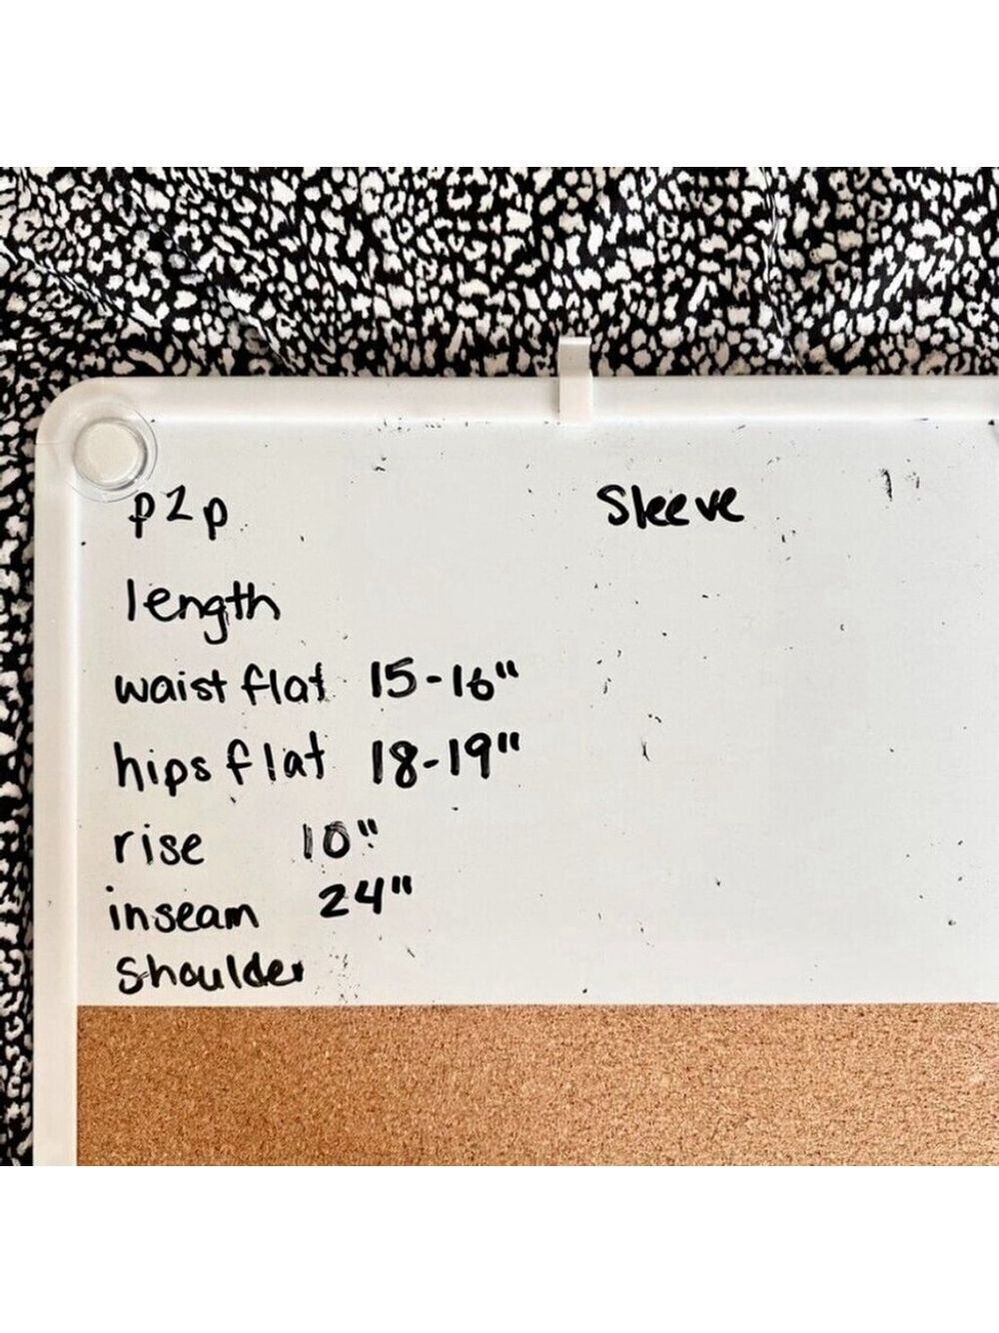 p2p Sleeve
length
waist flat 15-16"
hips flat 18-19"
rise 10"
inseam 24"
Shoulder